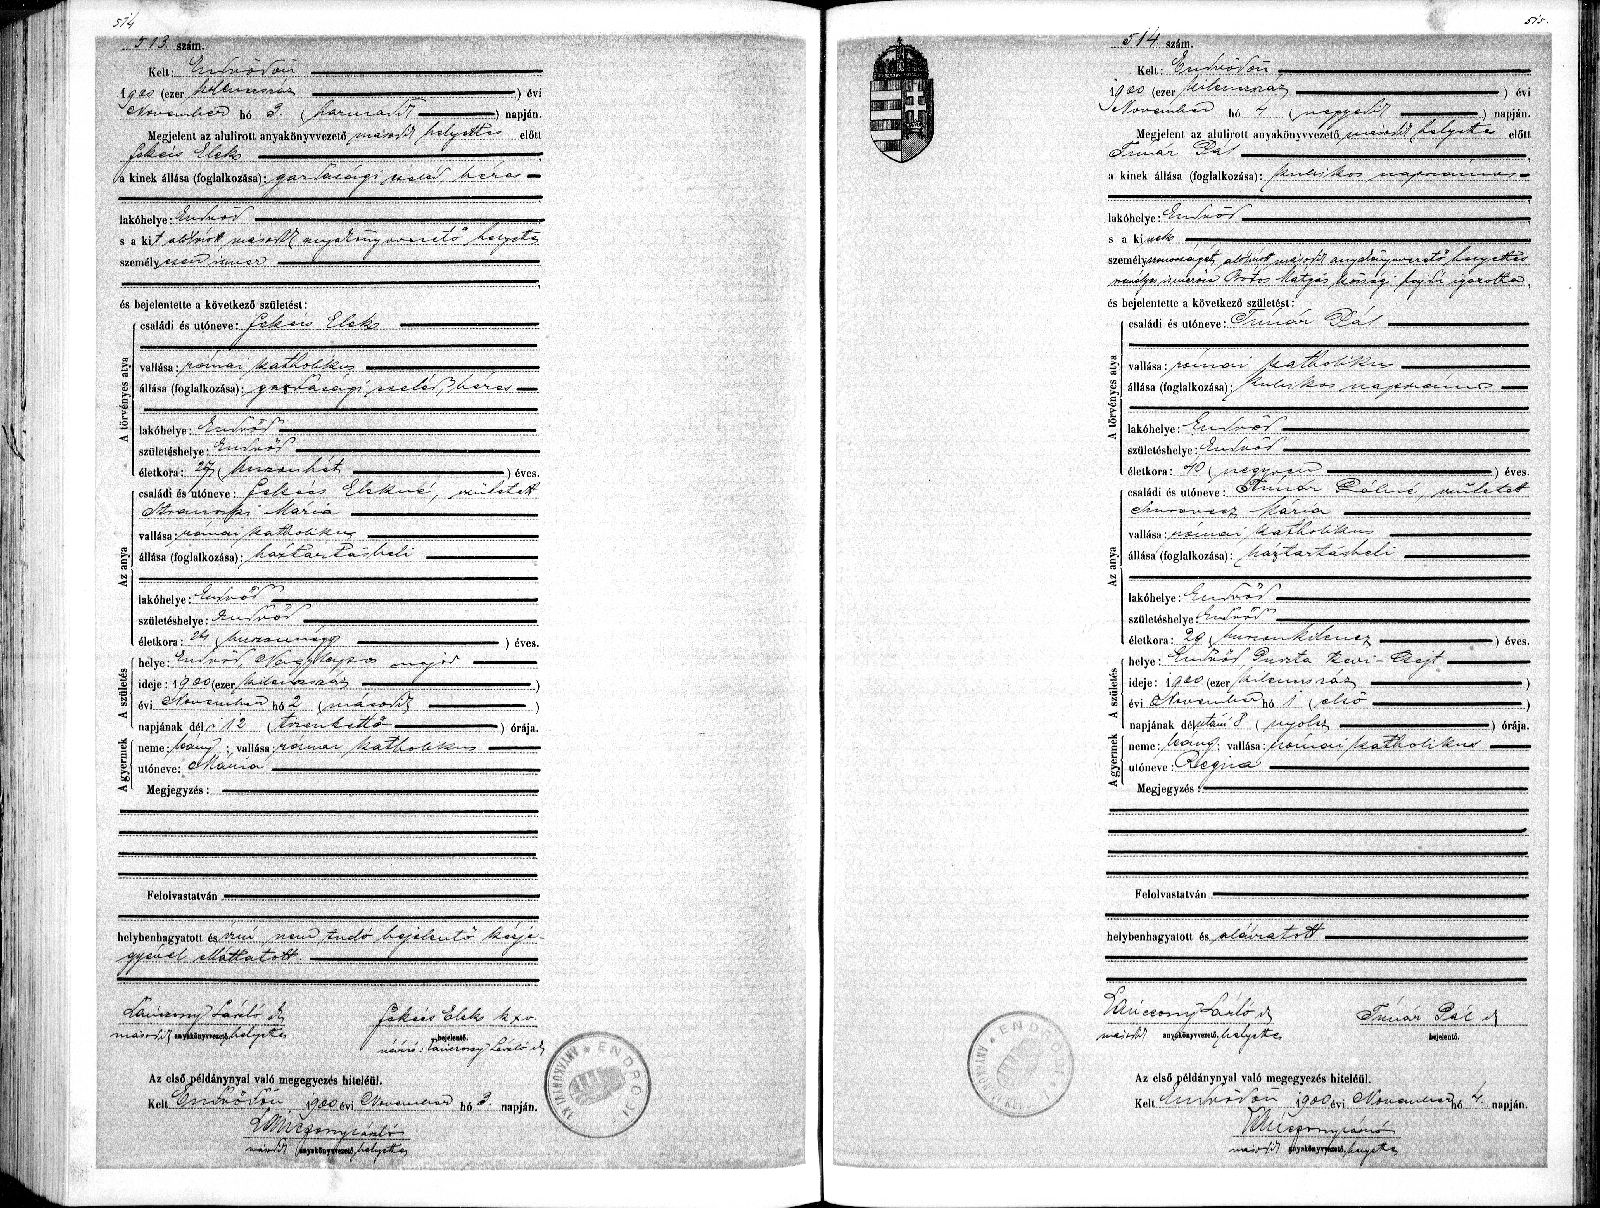 514
513 szám.
Kelt: Endrődön
1900 (ezer kilencszáz) évi
November hó 3. (harmadik) napján.
Megjelent az alulirott anyakönyvvezető második helyettes előtt
Elek
a kinek állása (foglalkozása): gazdasági cseléd, béres
lakóhelye: Endrőd
s a kit alólirott második anyakönyvvezető helyettes
személyesen ismer
és bejelentette a következő születést:
A törvényes atya
családi és utóneve: Elek
vallása: római katholikus
állása (foglalkozása): gazdasági cseléd, béres
lakóhelye: Endrőd
születéshelye: Endrőd
életkora: 27 (huszonhét) éves.
Az anya
családi és utóneve: Elekné, született
Mária
vallása: római katholikus
állása (foglalkozása): háztartásbeli
lakóhelye: Endrőd
születéshelye: Endrőd
életkora: 24 (huszonnégy) éves.
A születés
helye: Endrőd, major
ideje: 1900 (ezer kilencszáz)
évi November hó 2 (második)
napjának dél: 12 (tizenkettő) órája.
A gyermek
neme: leány; vallása: római katholikus
utóneve: Mária
Megjegyzés:
Felolvastatván
helybenhagyatott és írni nem tudó bejelentő kézje-
gyével elláttatott
László
Elek
második anyakönyvvezető helyettes
bejelentő.
László
Az első példánynyal való megegyezés hiteléül.
Kelt Endrődön 1900 évi November hó 3 napján.
második anyakönyvvezető, helyettes
515.
514 szám.
Kelt: Endrődön
1900 (ezer kilencszáz) évi
November hó 4 (negyedik) napján.
Megjelent az alulirott anyakönyvvezető második helyettes előtt
Tímár Pál
a kinek állása (foglalkozása): kubikos napszámos
lakóhelye: Endrőd
s a kinek
személyazonosságát, alólirott második anyakönyvvezető helyettes
személyes ismerőse Mátyás községi igazolta,
és bejelentette a következő születést:
A törvényes atya
családi és utóneve: Tímár Pál
vallása: római katholikus
állása (foglalkozása): kubikos napszámos
lakóhelye: Endrőd
születéshelye: Endrőd
életkora: 40 (negyven) éves.
Az anya
családi és utóneve: Tímár Pálné, született
Mária
vallása: római katholikus
állása (foglalkozása): háztartásbeli
lakóhelye: Endrőd
születéshelye: Endrőd
életkora: 29 (huszonkilencz) éves.
A születés
helye: Endrőd Puszta
ideje: 1900 (ezer kilencszáz)
évi November hó 1 (első)
napjának délutáni 8 (nyolcz) órája.
A gyermek
neme: leány; vallása: római katholikus
utóneve: Regina
Megjegyzés:
Felolvastatván
helybenhagyatott és aláiratott
László
Tímár Pál
második anyakönyvvezető, helyettes
bejelentő.
Az első példánynyal való megegyezés hiteléül.
Kelt Endrődön 1900 évi November hó 4. napján.
második anyakönyvvezető, helyettes